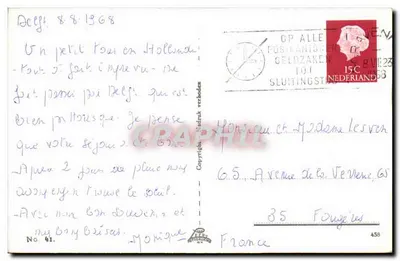 Delft 8.8.1968
Un petit tour en Hollande
tout à fait imprévu me
fait passer par Delft qui est
bien pittoresque. Je pense
que votre séjour
Après 2 jours de pluie nous
le soleil.
Avec mon bon souvenir et
mes bons baisers.
Monique
No. 41.
Copyright
nadruk verboden
OP ALLE
POSTKANTOREN
GELDZAKEN
TOT
SLUITINGSTIJD
15C
NEDERLAND
Monsieur et Madame
65, Avenue de la Verrerie, 65
35 Fougères
France